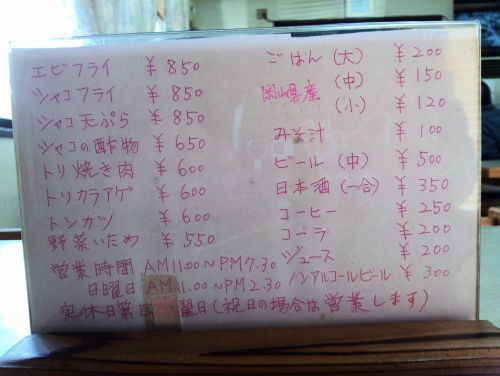 エビフライ ¥850
シャコフライ ¥850
シャコ天ぷら ¥850
シャコの酢物 ¥650
トリ焼き肉 ¥600
トリカラアゲ ¥600
トンカツ ¥600
野菜いため ¥550
ごはん (大) ¥200
岡山県産 (中) ¥150
(小) ¥120
みそ汁 ¥100
ビール (中) ¥500
日本酒(一合) ¥350
コーヒー ¥250
コーラ ¥200
ジュース ¥200
ノンアルコールビール ¥300
営業時間 AM11.00~PM7.30
日曜日 AM11.00~PM2.30
定休日第四 曜日(祝日の場合は営業します)